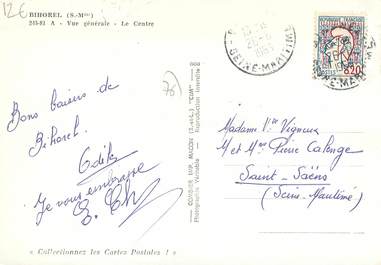 12€
BIHOREL (S.-Mme)
245-83 A - Vue générale - Le Centre
SEINE-MARITIME
0,20
Bons baisers de
Bihorel.
Odile
Je vous embrasse
76
COMBIER IMP. MACON (S.-et-L.) "CIM"
Photographie Véritable - Reproduction Interdite
Madame Vve Vigneux
M et Mme Pierre Calenge
Saint-Saëns
(Seine-Maritime)
« Collectionnez les Cartes Postales ! »